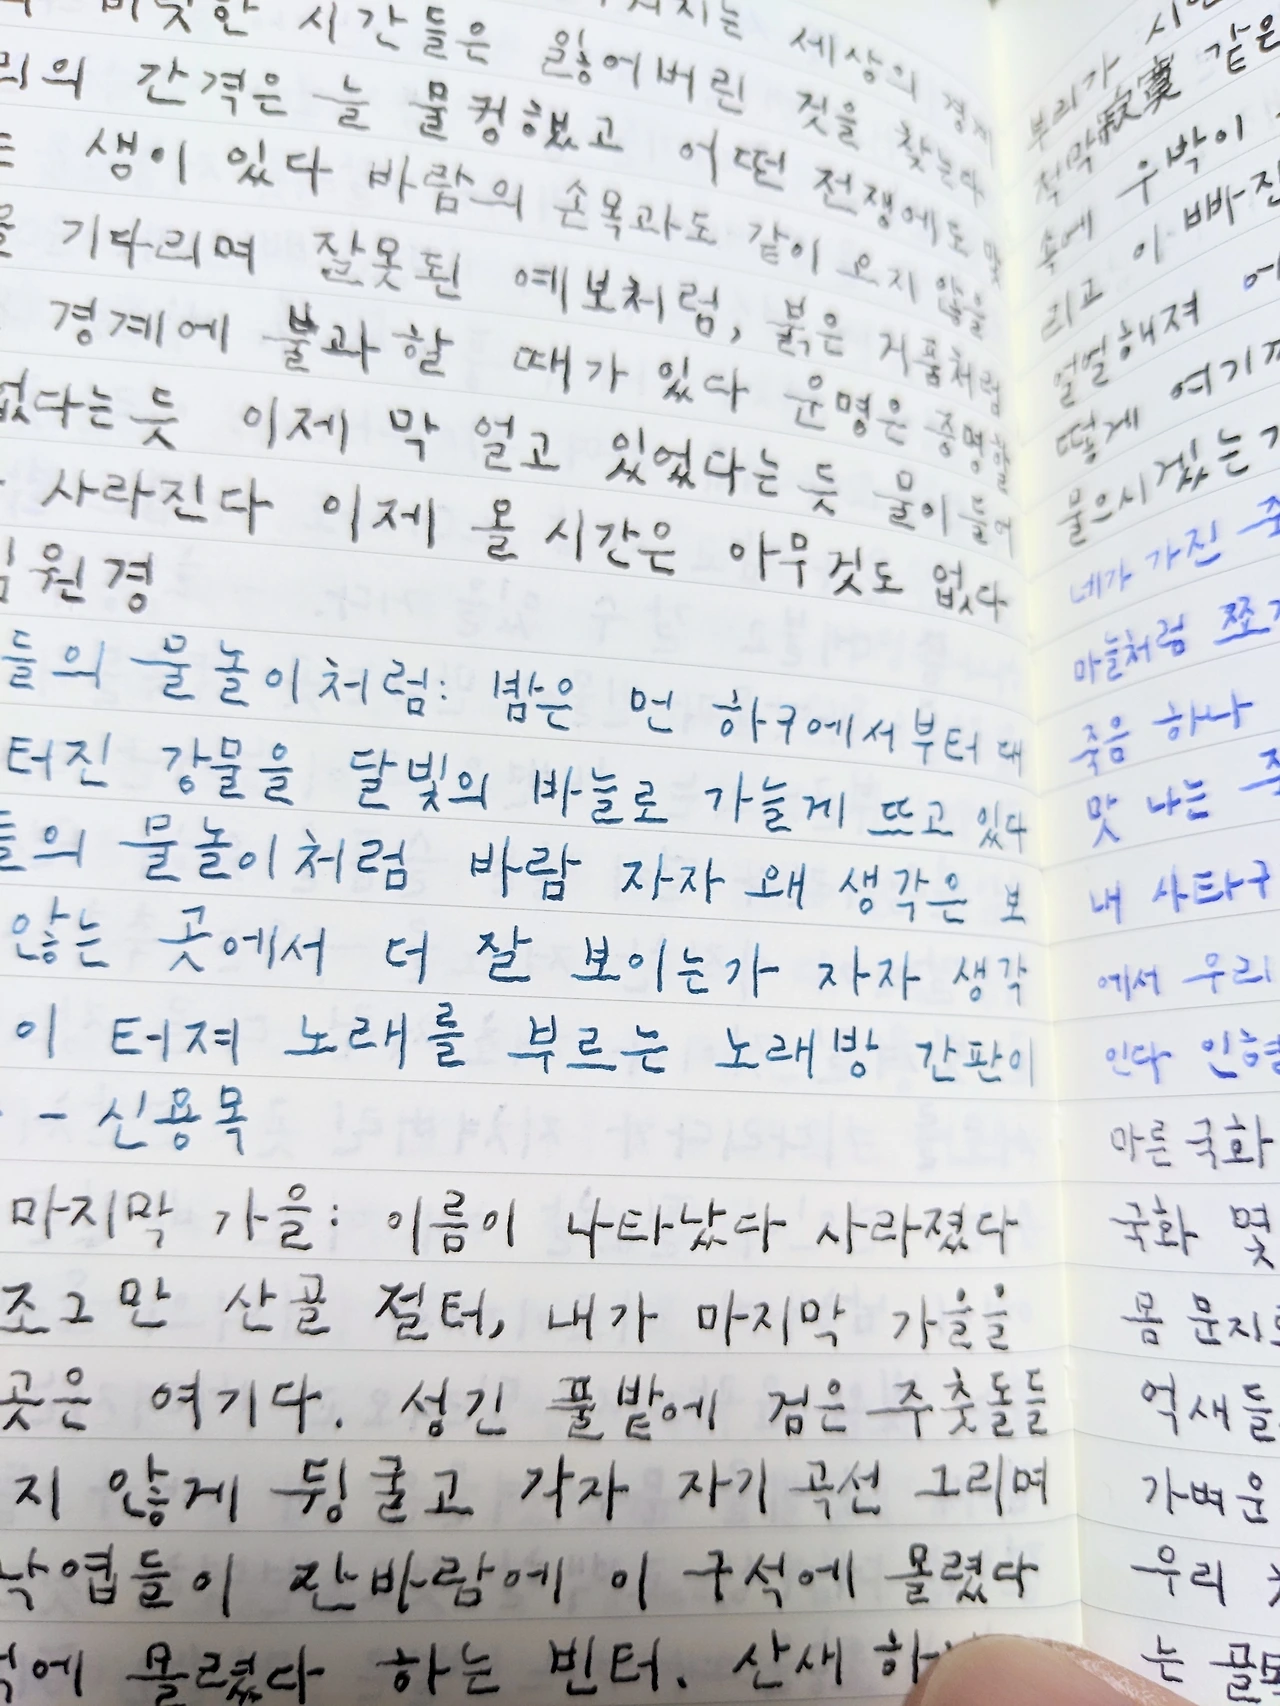 비슷한 시간들은 잃어버린 짓을 찾는다
간격은 늘 물컹했고 어떤 전쟁에도
생이 있다 바람의 손목과도 같이 오지 않을
기다리며 잘못된 예보처럼, 붉은 거품처럼
경계에 불과할 때가 있다 운명은 증명할
없다는 듯 이제 막 얼고 있었다는 듯 물이 들어
사라진다 이제 올 시간은 아무것도 없다
원경
들의 물놀이처럼: 밤은 먼 하구에서부터 대
터진 강물을 달빛의 바늘로 가늘게 뜨고 있다
들의 물놀이처럼 바람 자자 왜 생각은 보
않는 곳에서 더 잘 보이는가 자자 생각
이 터져 노래를 부르는 노래방 간판이
- 신용목
마지막 가을: 이름이 나타났다 사라졌다
조그만 산골 절터, 내가 마지막 가을을
곳은 여기다. 성긴 풀밭에 검은 주춧돌들
지 않게 뒹굴고 각자 자기 곡선 그리며
낙엽들이 잔바람에 이 구석에 몰렸다
에 몰렸다 하는 빈터. 산새
부리가
적막寂寞 같은
속에 우박이
리고 이 빠진
얼얼해져
떻게 여기
물으시겠는가
네가 가진
마늘처럼
죽음 하나
맛 나는
내 사타구
에서 우리
인다 인형
마른 국화
국화 몇
몸 문지
억새들
가벼운
우리
는